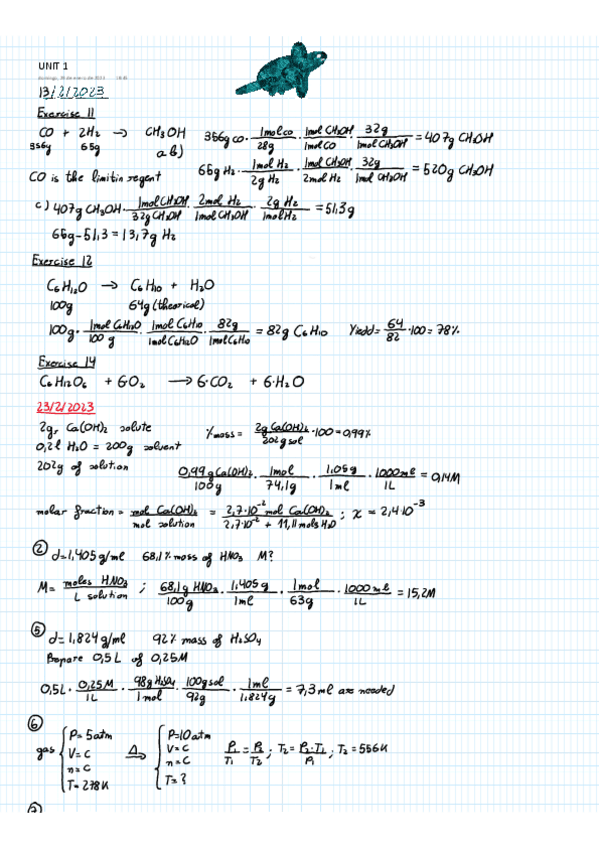 UNIT 1
domingo, 29 de enero de 2023 18:45
13/2/2023
Exercise 11
CO + 2H₂ → CH3OH 356g CO · 1mol CO/28g · 1mol CH3OH/1mol CO · 32g/1mol CH3OH = 407g CH3OH
356g 65g a b) 65g H₂ · 1mol H₂/2g H₂ · 1mol CH3OH/2mol H₂ · 32g/1mol CH3OH = 520g CH3OH
CO is the limitin regent
c) 407g CH3OH · 1mol CH3OH/32g CH3OH · 2mol H₂/1mol CH3OH · 2g H₂/1mol H₂ = 51,3g
65g-51,3 = 13,7g H₂
Exercise 12
C₆H₁₂O → C₆H₁₀ + H₂O
100g 64g (theorical)
100g · 1mol C₆H₁₂O/100 g · 1mol C₆H₁₀/1mol C₆H₁₂O · 82g/1mol C₆H₁₀ = 82g C₆H₁₀ Yield = 64/82 · 100 = 78%
Exercise 14
C₆H₁₂O₆ + 6·O₂ → 6·CO₂ + 6·H₂O
23/2/2023
2g, Ca(OH)₂ solute %mass = 2g Ca(OH)₂/202g sol · 100 = 0,99%
0,2l H₂O = 200g solvent
202g of solution 0,99g Ca(OH)₂/100g · 1mol/74,1g · 1,05g/1ml · 1000ml/1L = 0,14M
molar fraction = mol Ca(OH)₂/mol solution = 2,7·10⁻² mol Ca(OH)₂/2,7·10⁻² + 11,11 mols H₂O ; x = 2,4·10⁻³
② d=1,405g/ml 68,1% mass of HNO₃ M?
M = moles HNO₃/L solution ; 68,1g HNO₃/100g · 1,405g/1ml · 1mol/63g · 1000 ml/1L = 15,2M
⑤ d=1,824g/ml 92% mass of H₂SO₄
Prepare 0,5L of 0,25M
0,5L · 0,25M/1L · 98g H₂SO₄/1mol · 100g sol/92g · 1ml/1,824g = 7,3ml are needed
⑥ gas { P= 5atm V= C n= C T= 278K Δ → { P=10atm V= C n= C T= ? P₁/T₁ = P₂/T₂ ; T₂ = P₂·T₁/P₁ ; T₂ = 556K